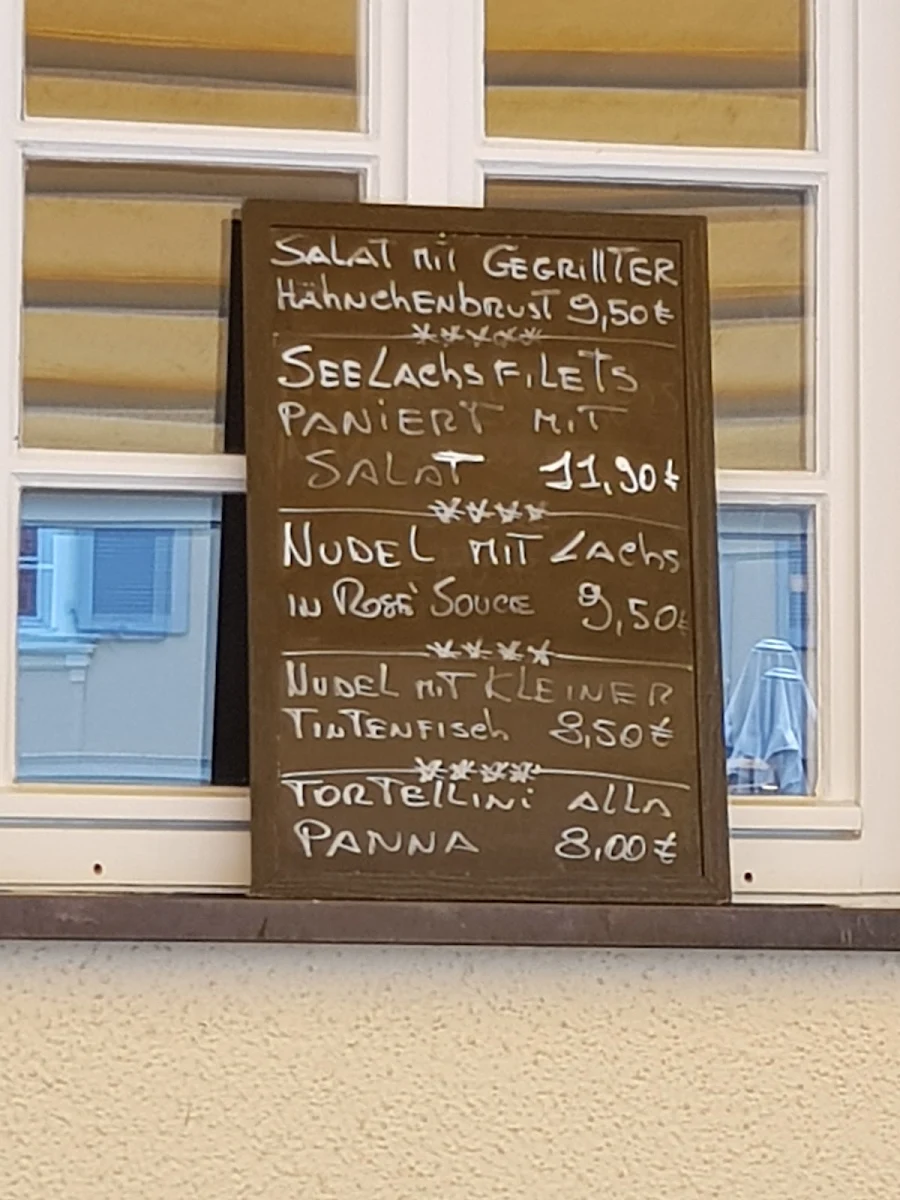 SALAT MIT GEGRILLTER
HÄHNCHENBRUST 9,50 €
*****
SEELACHSFILETS
PANIERT MIT
SALAT 11,90 €
****
NUDEL MIT LACHS
IN ROSÉ SOUCE 9,50 €
****
NUDEL MIT KLEINER
TINTENFISCH 8,50 €
****
TORTELLINI ALLA
PANNA 8,00 €